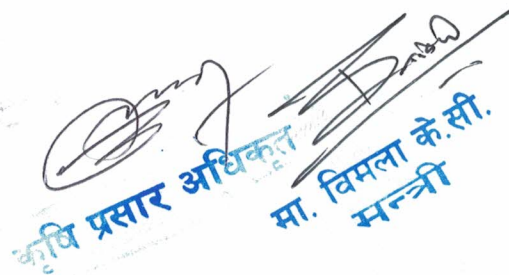 कृषि प्रसार अधिकृत
मा. विमला के.सी.
मन्त्री